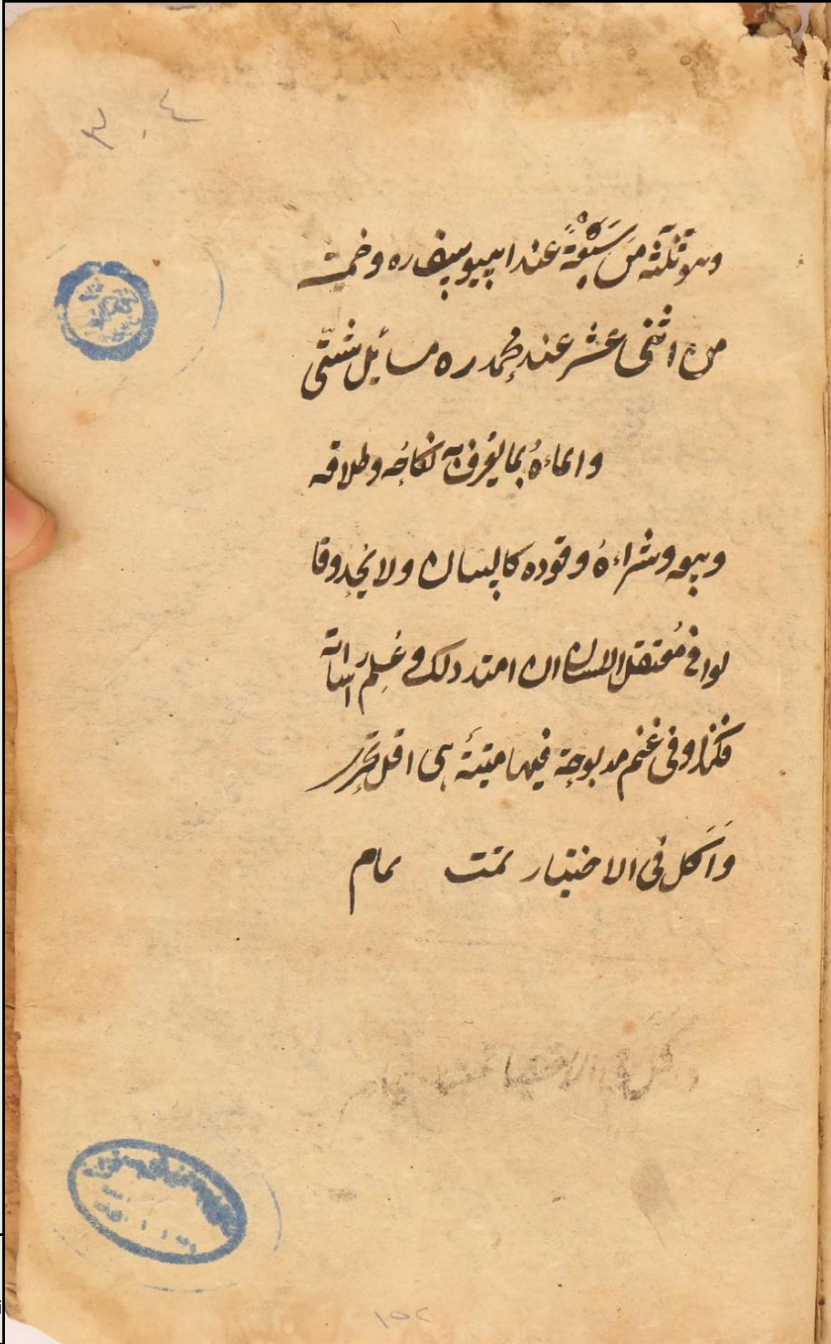 ٣٠٤
وهو ثلثة من سبعة عند ابييوسف ره وخمسة
من اثنى عشر عند محمد ره مسائل شتى
وايماءهُ بما يعرف به نكاحُه وطلاقه
وبيعه وشراءهُ وقوده كاللسان ولا يحدوقا
لوا فى مُعتقل اللسان ان امتد ذلك و عُلم اشاراته
فكذا وفى غنم مدبوحة فيها ميتة هى اقل تحرّى
وَاَكل فى الاختيار تمت تمام
١٥٢